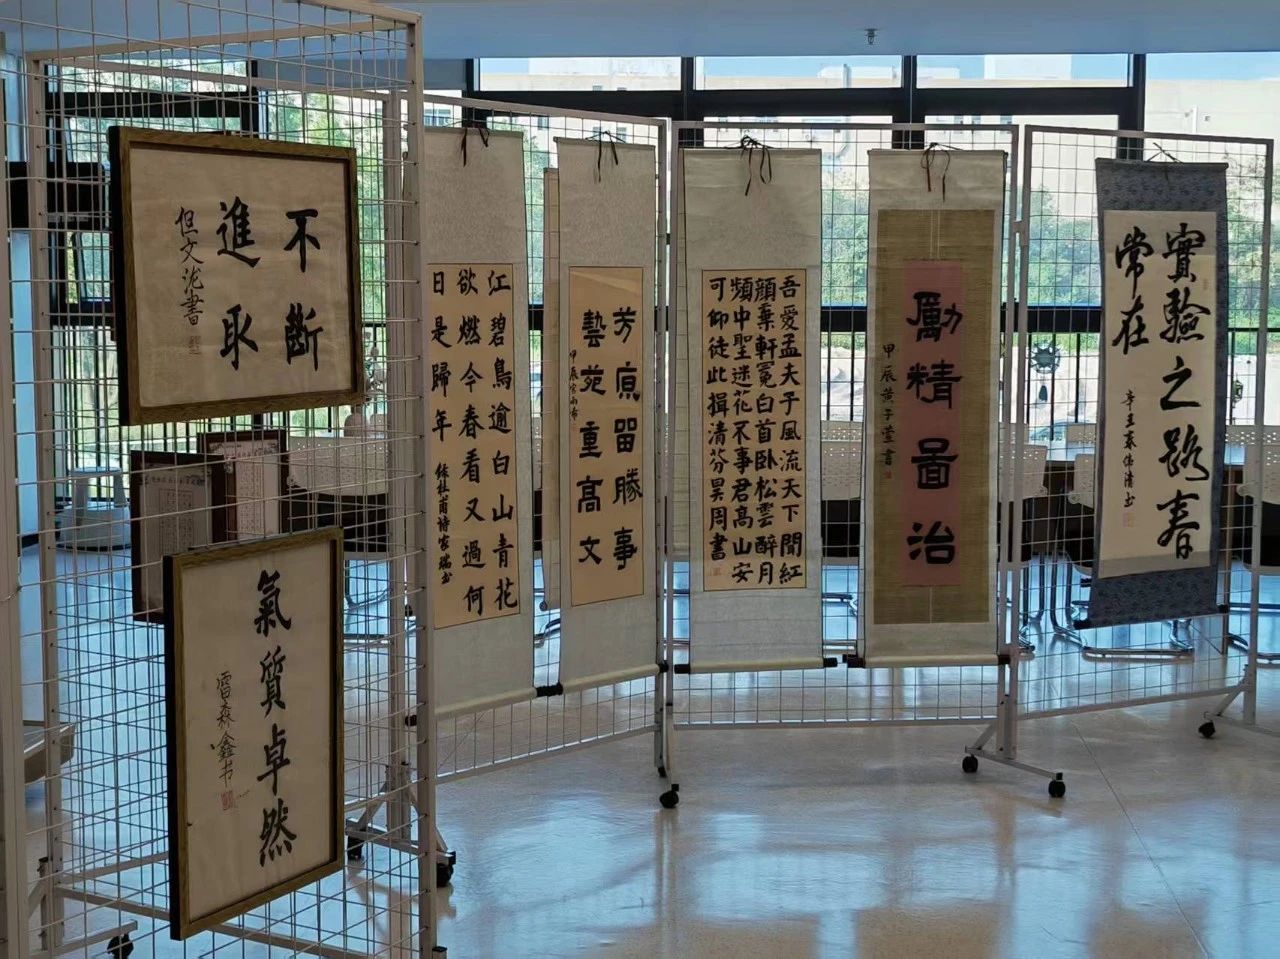 不斷
進取
但文沈書
氣質卓然
雷森鑫书
江碧鳥逾白山青花
欲燃今春看又過何
日是歸年
錄杜甫詩家瑞书
芳庭畱勝事
藝苑重高文
吾愛孟夫子風流天下聞紅
顔棄軒冕白首臥松雲醉月
頻中聖迷花不事君高山安
可仰徒此揖清芬昊周書
勵精圖治
甲辰黃子萱書
實驗之路春
常在